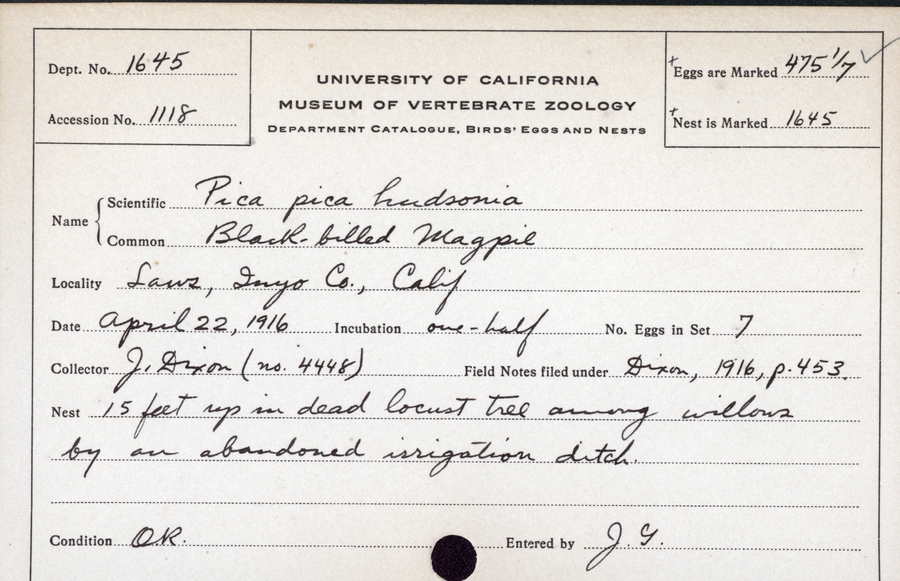 Dept. No. 1645
Accession No. 1118
UNIVERSITY OF CALIFORNIA
MUSEUM OF VERTEBRATE ZOOLOGY
DEPARTMENT CATALOGUE, BIRDS' EGGS AND NESTS
+Eggs are Marked 475 1/7 ✓
+Nest is Marked 1645
Name { Scientific Pica pica hudsonia
Common Black-billed Magpie
Locality Laws, Inyo Co., Calif
Date April 22, 1916 Incubation one-half No. Eggs in Set 7
Collector J. Dixon (no. 4448) Field Notes filed under Dixon, 1916, p. 453.
Nest 15 feet up in dead locust tree among willows
by an abandoned irrigation ditch.
Condition OK. Entered by J. G.